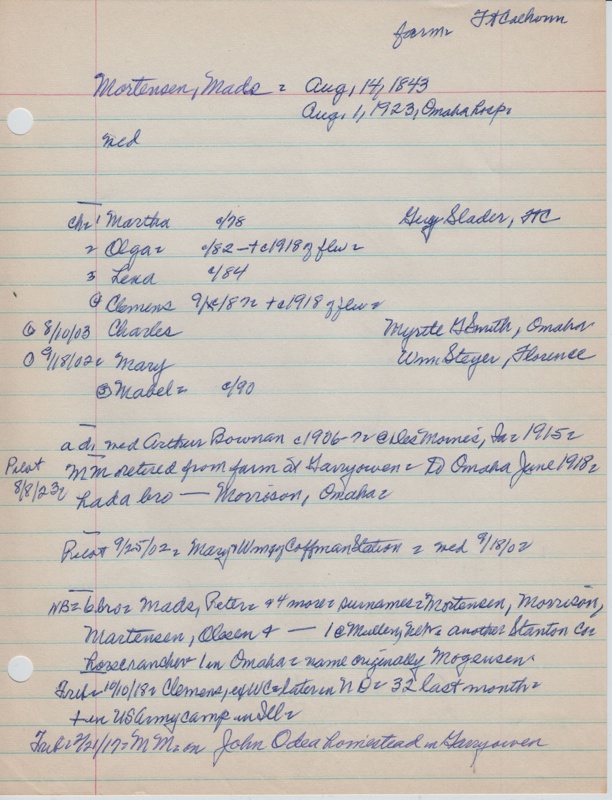 farm= Ft Calhoun
Mortensen, Mads = Aug, 14, 1843
Aug, 1, 1923, Omaha hosp.
wed
ch= 1 Martha c/78 Guy Slader, FC
2 Olga= c/82 - + c1918 of flu =
3 Lena c/84
④ Clemens + c1918 of flu =
8/10/03 Charles Myrtle G Smith, Omaha
9/18/02 = Mary Wm Steyer, Florence
⑤ Mabel = c/90
a di wed Arthur Bowman c1906-7= @ Des Moines, Ia= 1915=
Pilot MM retired from farm at Garryowen = to Omaha June 1918=
8/8/23 had a bro — Morrison, Omaha=
Pilot 9/25/02= Mary + Wm @ Coffman Station = wed 9/18/02
NB= 6 bro= Mads, Peter= + 4 more= surnames= Mortensen, Morrison,
Martensen, Olesen + — 1 @ Mullen, Neb= another Stanton Co=
horserancher 1 in Omaha= name originally Mogensen
Trib= 10/10/18= Clemens, ex WC= later in ND= 32 last month=
+ in US Army camp in Ill=
Trib= 2/21/17= MM= on John Odea homestead in Garryowen